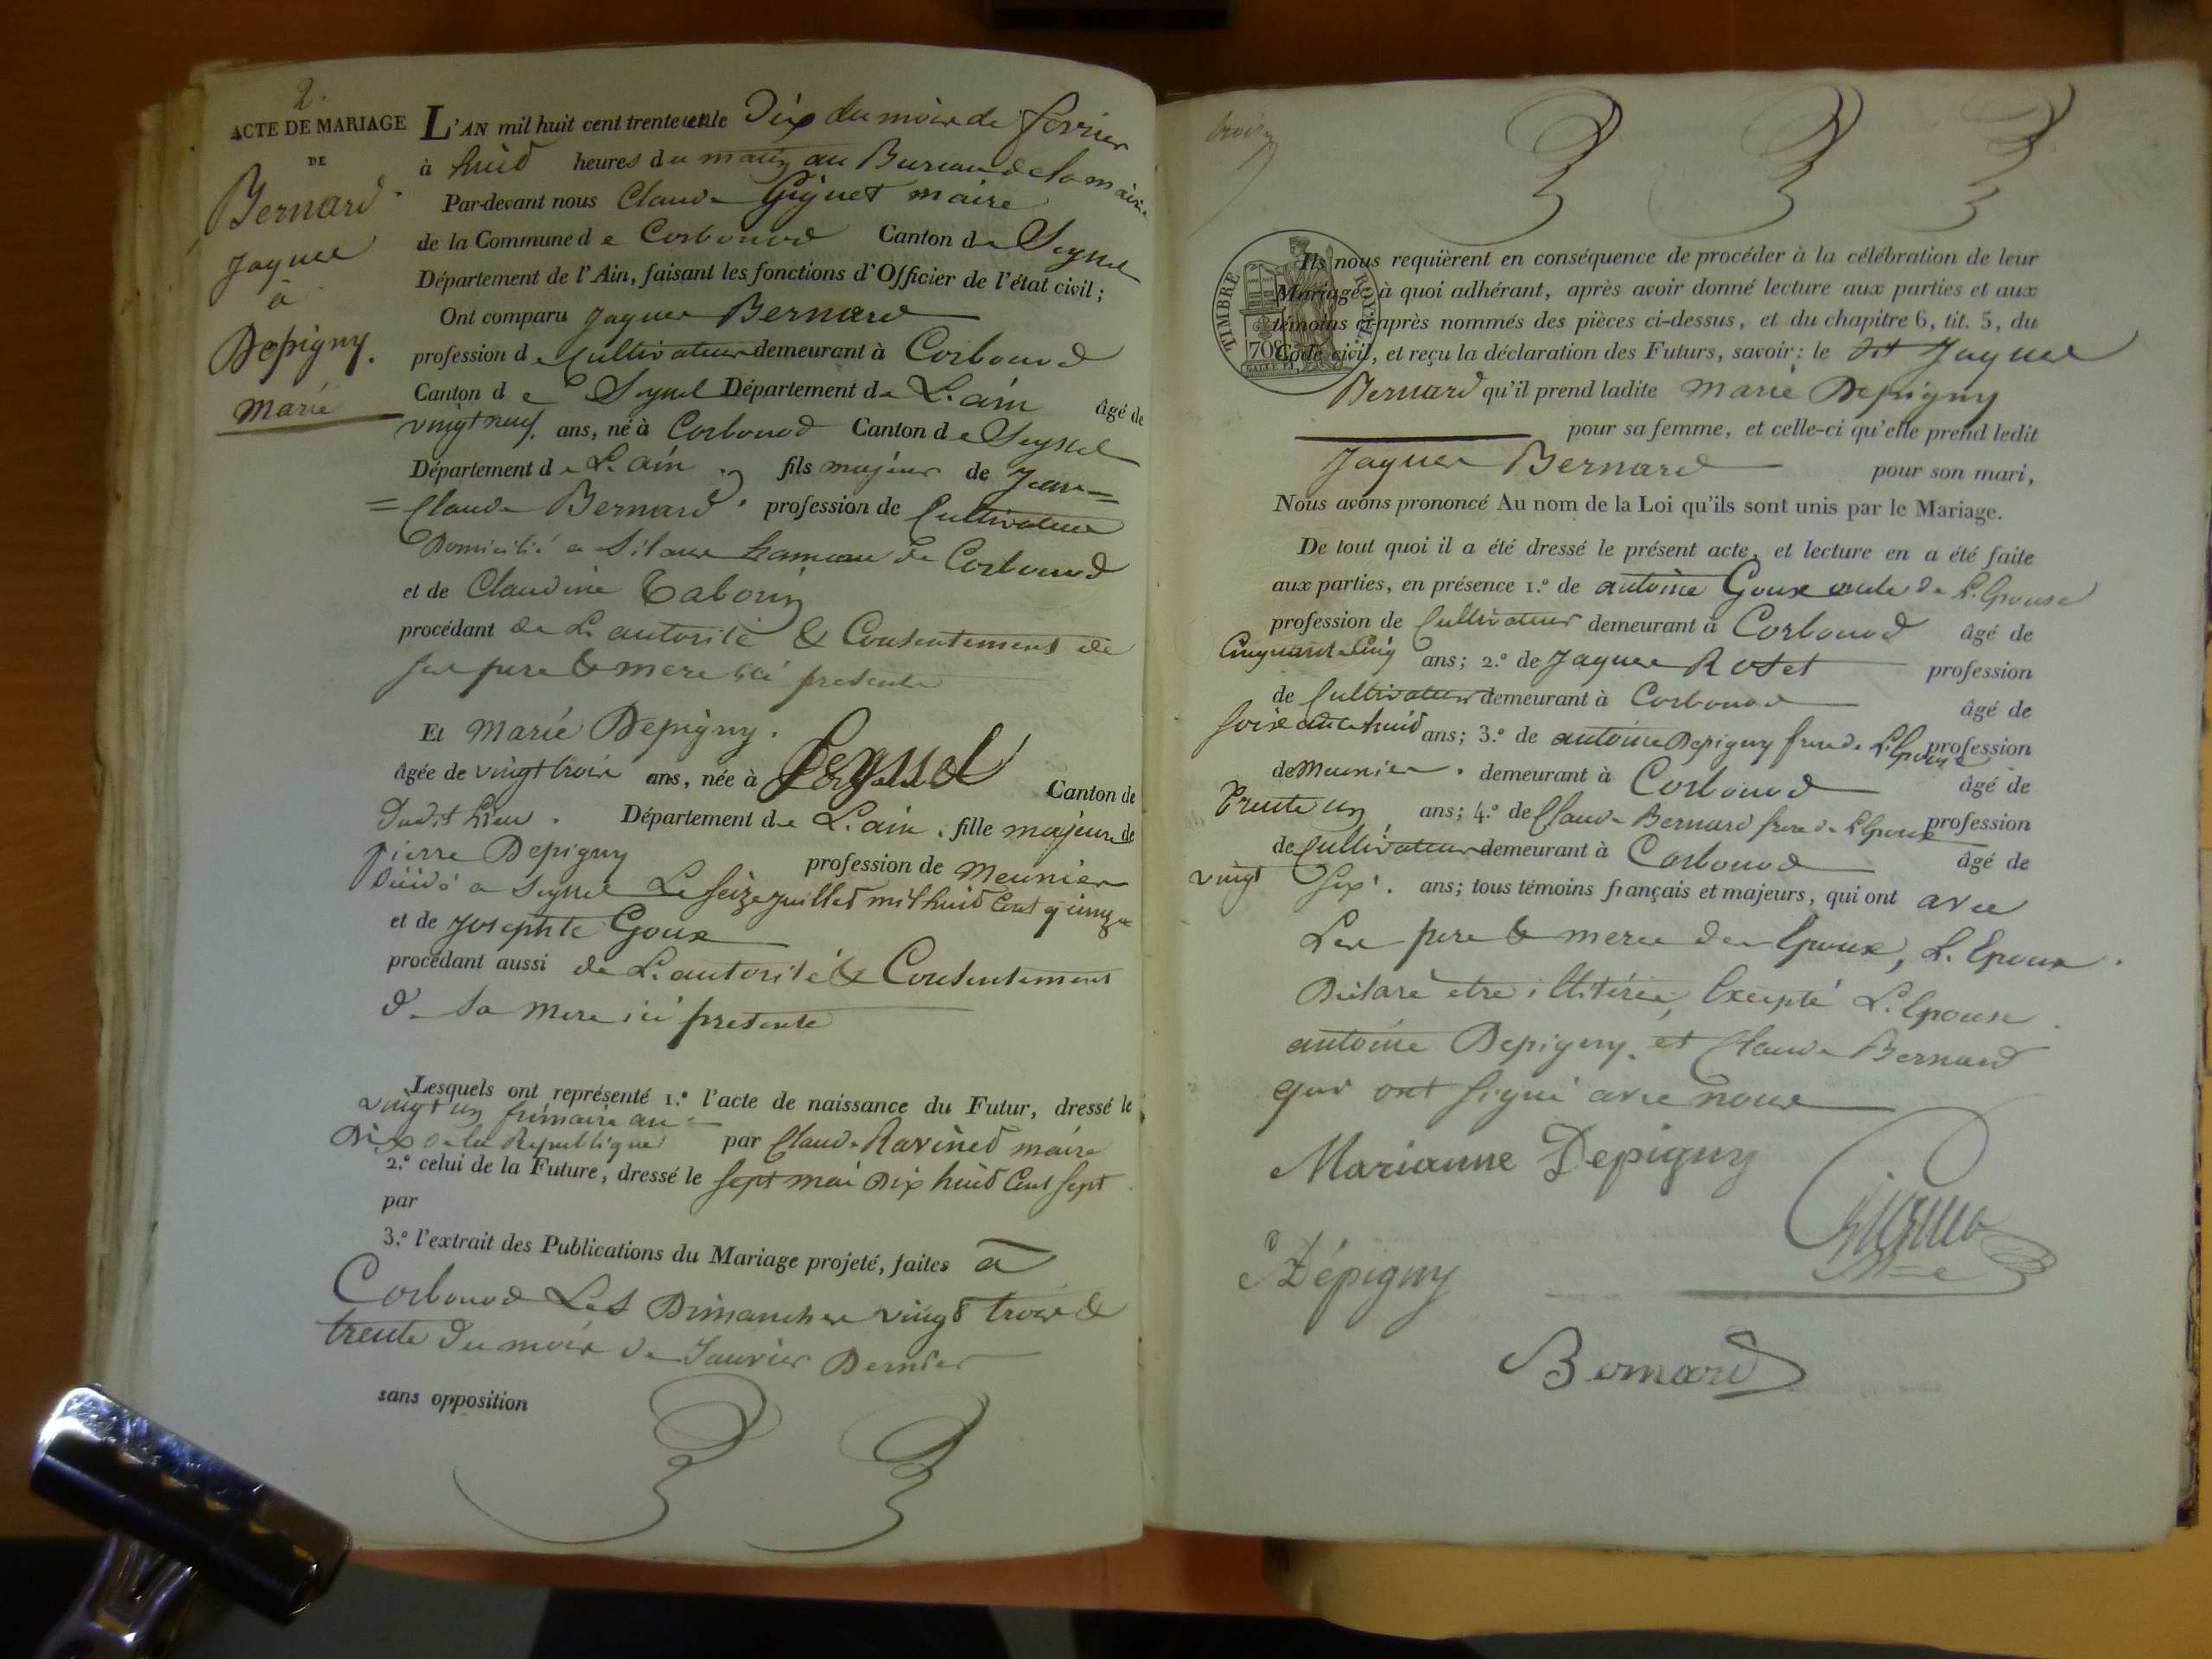 2.
ACTE DE MARIAGE
DE
Bernard
Jaques
à
Depigny.
Marie
L'AN mil huit cent trente un le Dix du mois de fevrier
à huit heures du matin au Bureau de la mairie
Par-devant nous Claude Giguet maire
de la Commune de Corbonod Canton de Seyssel
Département de l'Ain, faisant les fonctions d'Officier de l'état civil;
Ont comparu Jaques Bernard
profession de Cultivateur demeurant à Corbonod
Canton de Seyssel Département de L'ain âgé de
vingt neuf ans, né à Corbonod Canton de Seyssel
Département de L'ain fils majeur de Jean=
=Claude Bernard. profession de Cultivateur
Domicilié a Silans hameau de Corbonod
et de Claudine Taborin
procédant de L'autorité & Consentement de
ses pere & mere ici presents
Et Marie Depigny.
âgée de vingt trois ans, née à Seyssel Canton de
Dudit Lieu. Département de L'ain. fille majeure de
pierre Depigny profession de Meunier
Décédé a Seyssel Le seize juillet mil huit Cent quinze
et de Josephte Goux
procédant aussi de L'autorité & Consentement
de sa mere ici presente
Lesquels ont représenté 1.º l'acte de naissance du Futur, dressé le
vingt un frimaire an
Dix de la Republique par Claude Ravinet maire
2.º celui de la Future, dressé le sept mai Dix huit Cent sept
par
3.º l'extrait des Publications du Mariage projeté, faites a
Corbonod Les Dimanches vingt trois &
trente du mois de Janvier Dernier
sans opposition
trois
TIMBRE ROYAL
70c
Ils nous requièrent en conséquence de procéder à la célébration de leur
Mariage, à quoi adhérant, après avoir donné lecture aux parties et aux
témoins ci-après nommés des pièces ci-dessus, et du chapitre 6, tit. 5, du
Code civil, et reçu la déclaration des Futurs, savoir: le dit Jaques
Bernard qu'il prend ladite Marie Depigny
pour sa femme, et celle-ci qu'elle prend ledit
Jaques Bernard pour son mari,
Nous avons prononcé Au nom de la Loi qu'ils sont unis par le Mariage.
De tout quoi il a été dressé le présent acte, et lecture en a été faite
aux parties, en présence 1.º de antoine Goux oncle de L'Epouse
profession de Cultivateur demeurant à Corbonod âgé de
Cinquante Cinq ans; 2.º de Jaques Roset profession
de Cultivateur demeurant à Corbonod âgé de
soixante huit ans; 3.º de antoine Depigny frere de L'Epouse profession
de Meunier. demeurant à Corbonod âgé de
trente un ans; 4.º de Claude Bernard frere de L'Epoux profession
de Cultivateur demeurant à Corbonod âgé de
vingt six. ans; tous témoins français et majeurs, qui ont avec
Les pere & meres des Epoux, L'Epoux.
Déclaré etre illitérés, Excepté L'Epouse
antoine Depigny. et Claude Bernard
qui ont signé avec nous
Marianne Depigny
Dépigny
Bernard